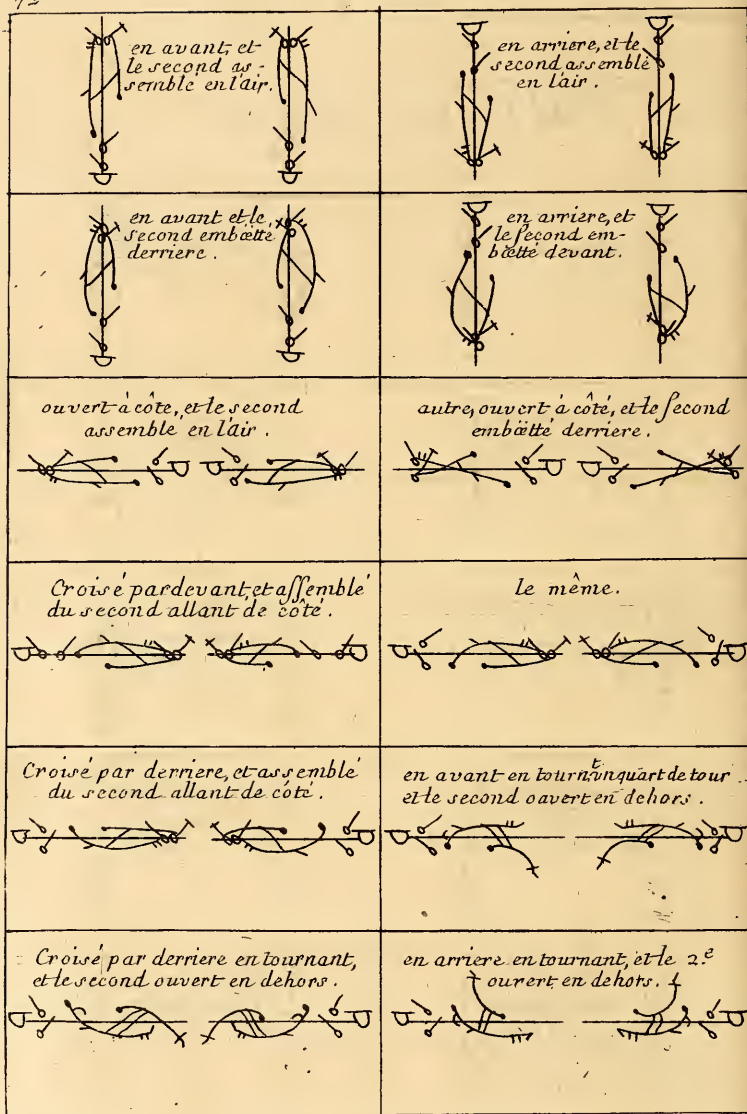 en avant, et
le second as-
semble en l'air.
en arriere, et le
second assemblé
en l'air.
en avant et le
second emböetté
derriere.
en arriere, et
le second em-
böetté devant.
ouvert à côte, et le second
assemble en l'air.
autre, ouvert à côté, et le second
emböetté derriere.
Croisé par devant, et assemblé
du second allant de côté.
le même.
Croisé par derriere, et assemblé
du second allant de côté.
en avant en tournt un quart de tour
et le second oavert en dehors.
Croisé par derriere en tournant,
et le second ouvert en dehors.
en arriere en tournant, et le 2.e
ouvert en dehors.